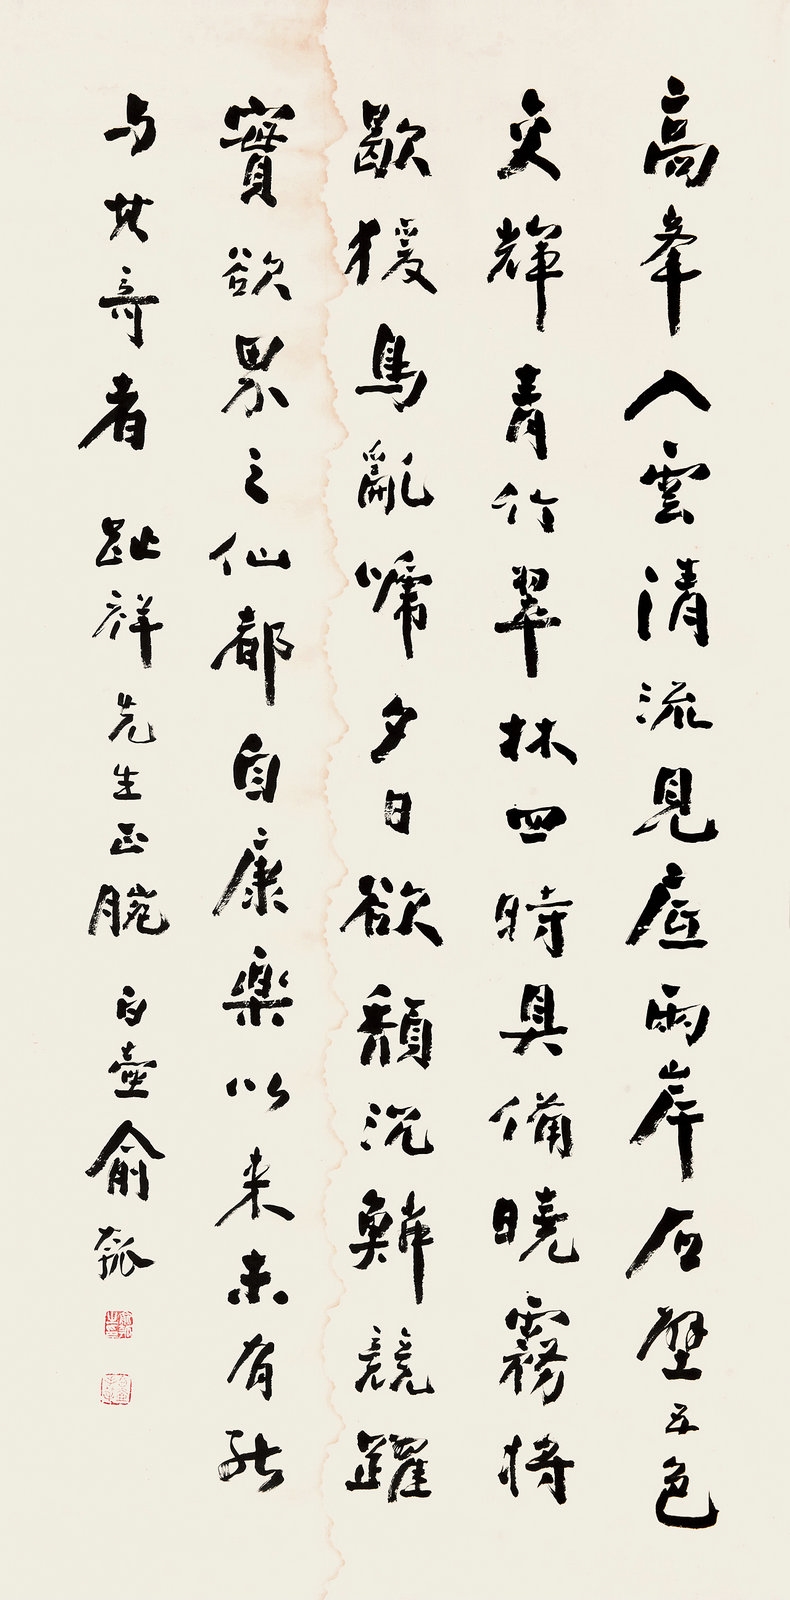 高峯入雲清流見底兩岸石壁五色
交輝青竹翠林四時具備曉霧將
歇猨鳥亂啼夕日欲頹沉鱗競躍
實欲界之仙都自康樂以来未有能
与其奇者 趾祥先生正腕 白壺俞瓠